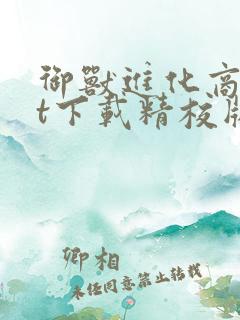 御獸進化商
t下載精校版
卿相
未经同意禁止转载